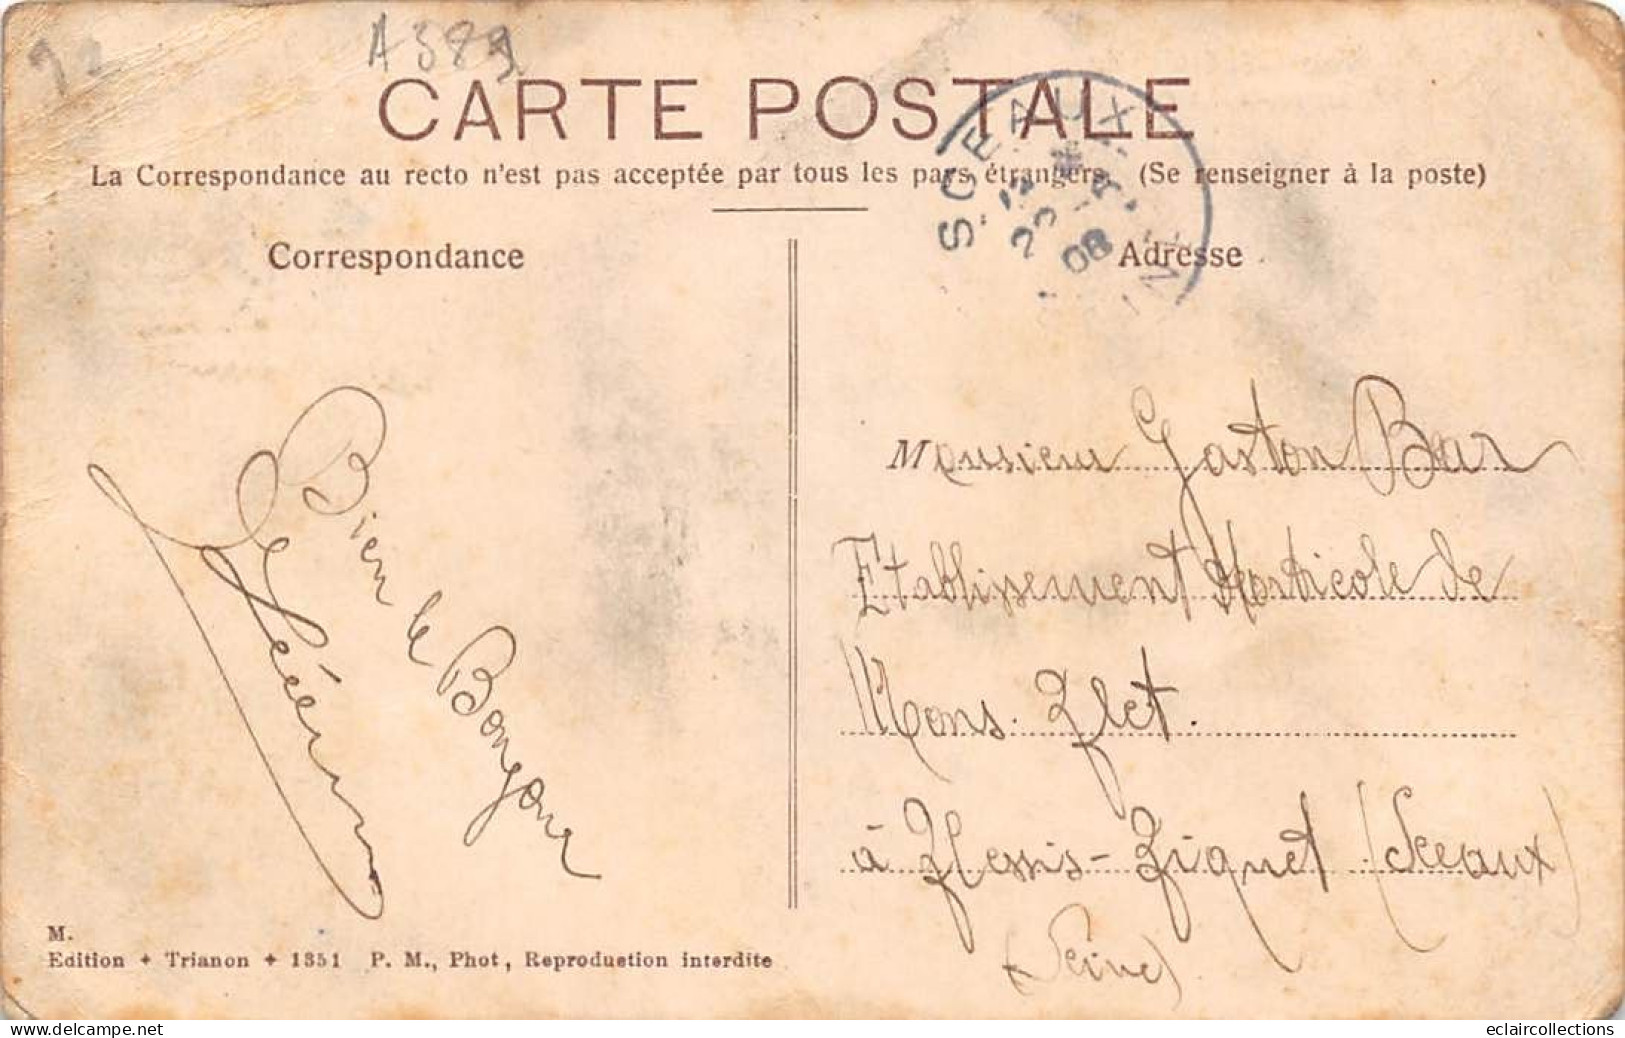 A 389
CARTE POSTALE
La Correspondance au recto n'est pas acceptée par tous les pays étrangers. (Se renseigner à la poste)
SCEAUX
23 -4
08
Correspondance
Adresse
Bien le Bonjour
Monsieur Gaston Bar
Etablissement Horticole de
Mons. Plet.
à Plessis-Piquet (Sceaux)
(Seine)
M.
Edition + Trianon + 1351 P. M., Phot, Reproduction interdite
eclaircollections